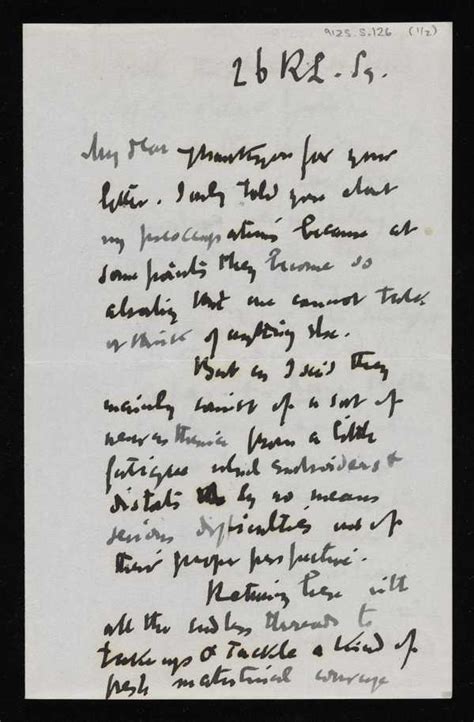 9125.5.126 (1/2)
26 R.L. Sq.
My dear Thankyou for your
letter. I only told you about
my preoccupations because at
some points they become so
absorbing that one cannot talk
or think of anything else.
But as I said they
mainly consist of a sort of
neurasthenia from a little
fatigue which embroiders &
distorts by no means
serious difficulties out of
their proper perspective.
Returning here with
all the endless threads to
take up & tackle a kind of
fresh courage